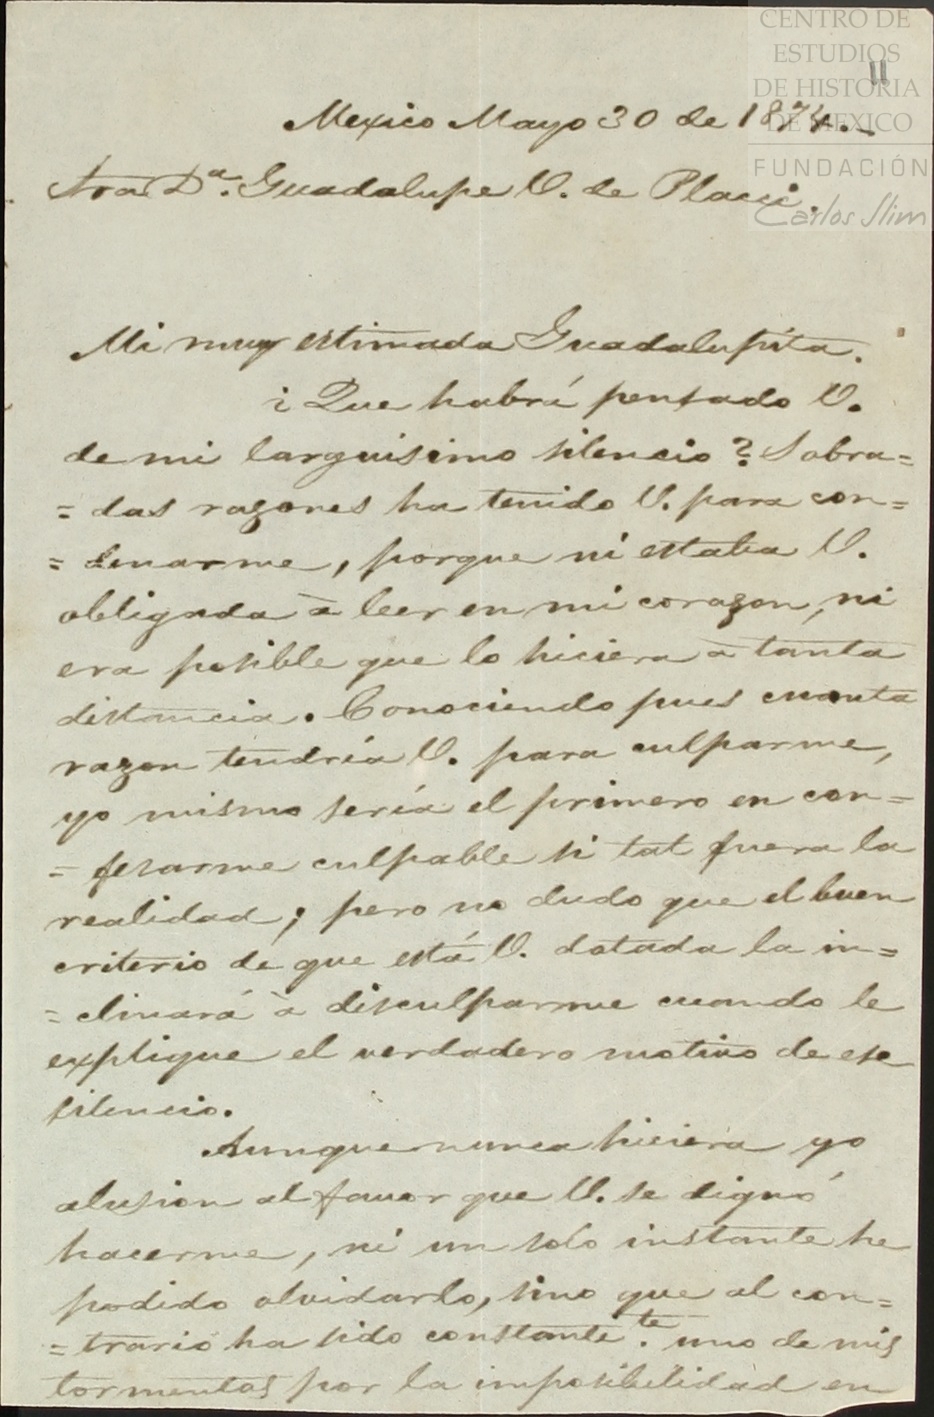 CENTRO DE
ESTUDIOS
DE HISTORIA
DE MEXICO
FUNDACIÓN
Carlos Slim
11
Mexico Mayo 30 de 1874.
Sra Dª. Guadalupe V. de
Mi muy estimada Guadalupita.
¿ Que habrá pensado V.
de mi larguisimo silencio? Sobra=
= das razones ha tenido V. para con=
= denarme, porque ni estaba V.
obligada à leer en mi corazon, ni
era posible que lo hiciera à tanta
distancia. Conociendo pues cuanta
razon tendría V. para culparme,
yo mismo sería el primero en con=
= fesarme culpable si tal fuera la
realidad; pero no dudo que el buen
criterio de que está V. dotada la in=
= clinará à disculparme cuando le
explique el verdadero motivo de ese
silencio.
Aunque nunca hiciera yo
alusion al favor que V. se dignó
hacerme, ni un solo instante he
podido olvidarlo, sino que al con=
= trario ha sido constante.te uno de mis
tormentos por la imposibilidad en